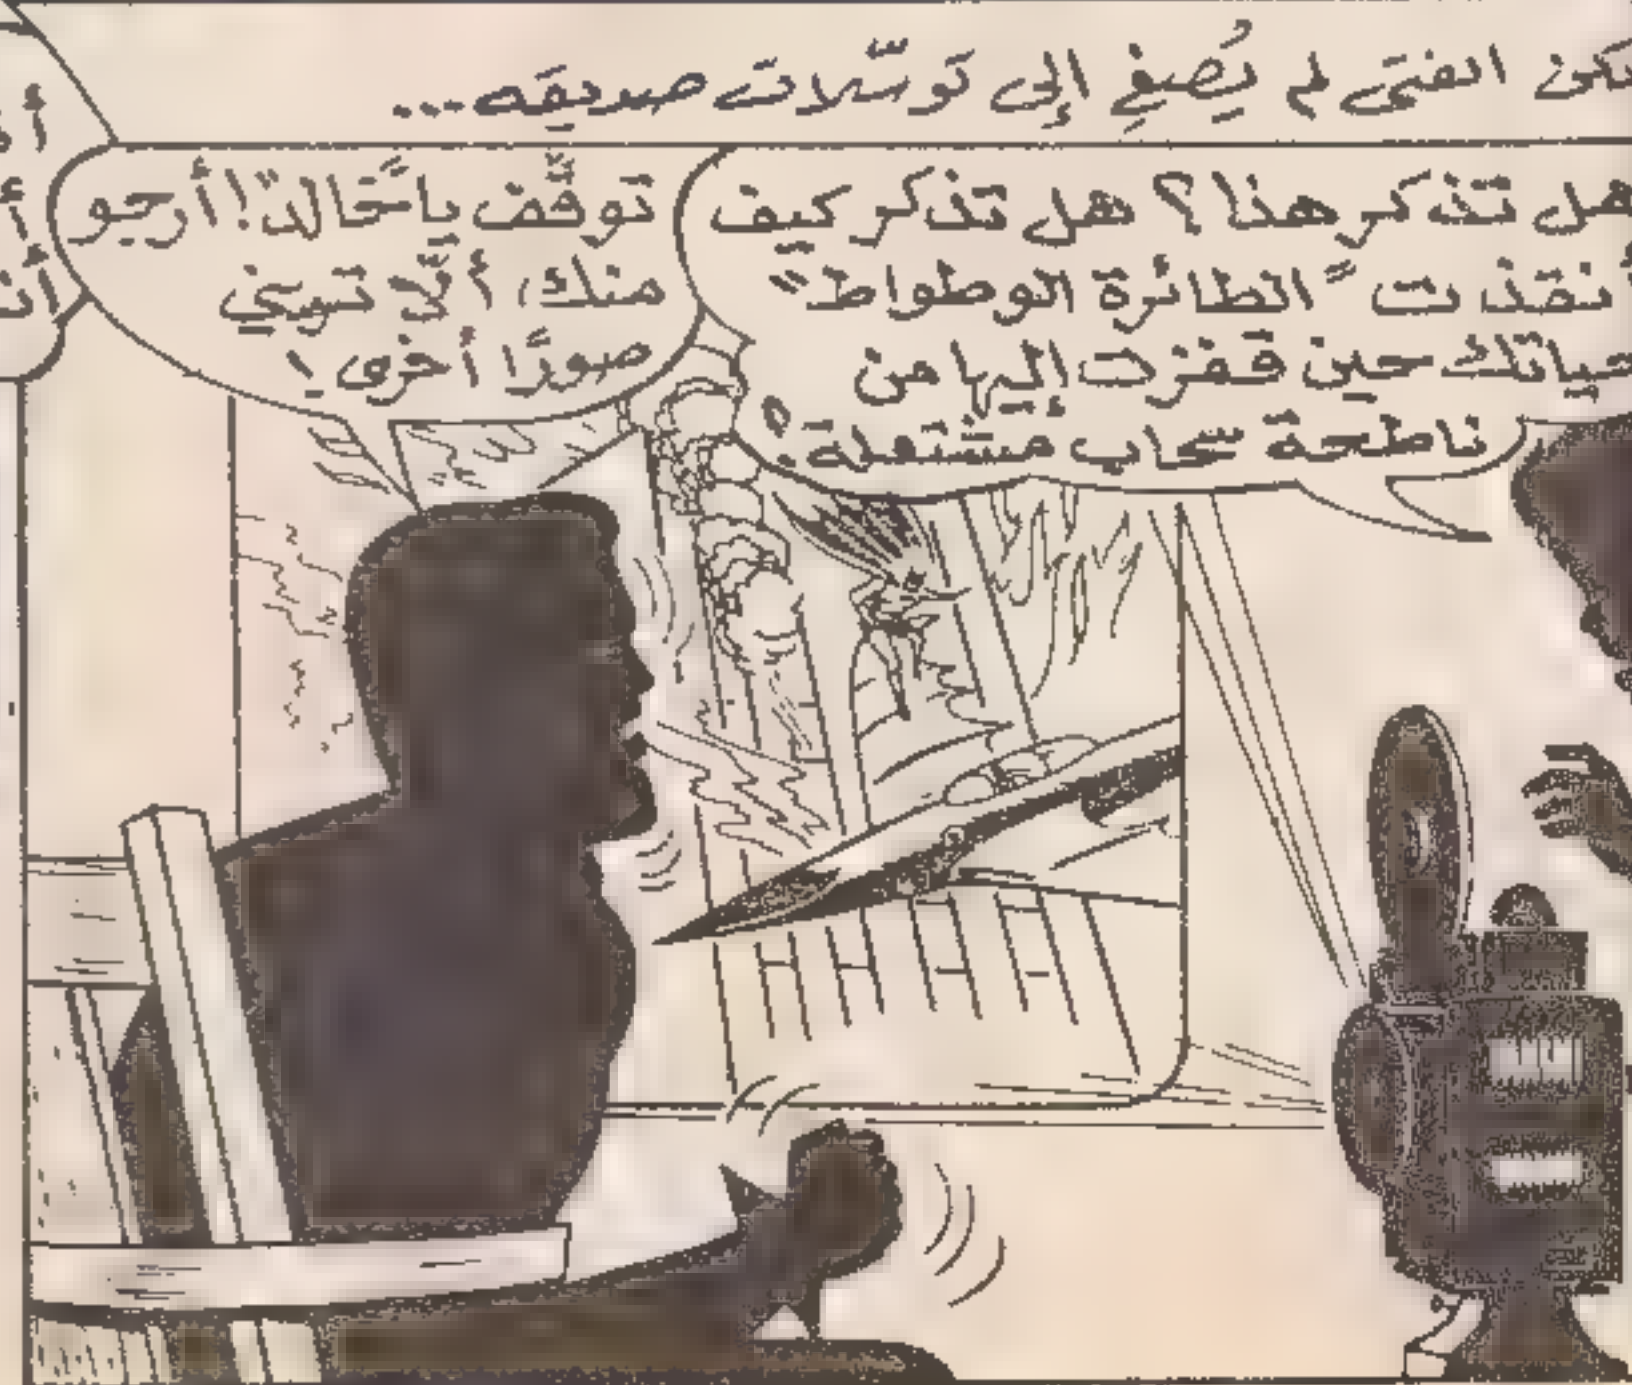 لكن الفتى لم يُصغِ إلى توسّلات صديقه...
هل تذكر هذا؟ هل تذكر كيف
أنقذت "الطائرة الوطواط"
حياتك حين قفزت إليها من
ناطحة سحاب مشتعلة؟
توقَّف يا "خالد"! أرجو
منك، ألّا تريني
صورًا أخرى!